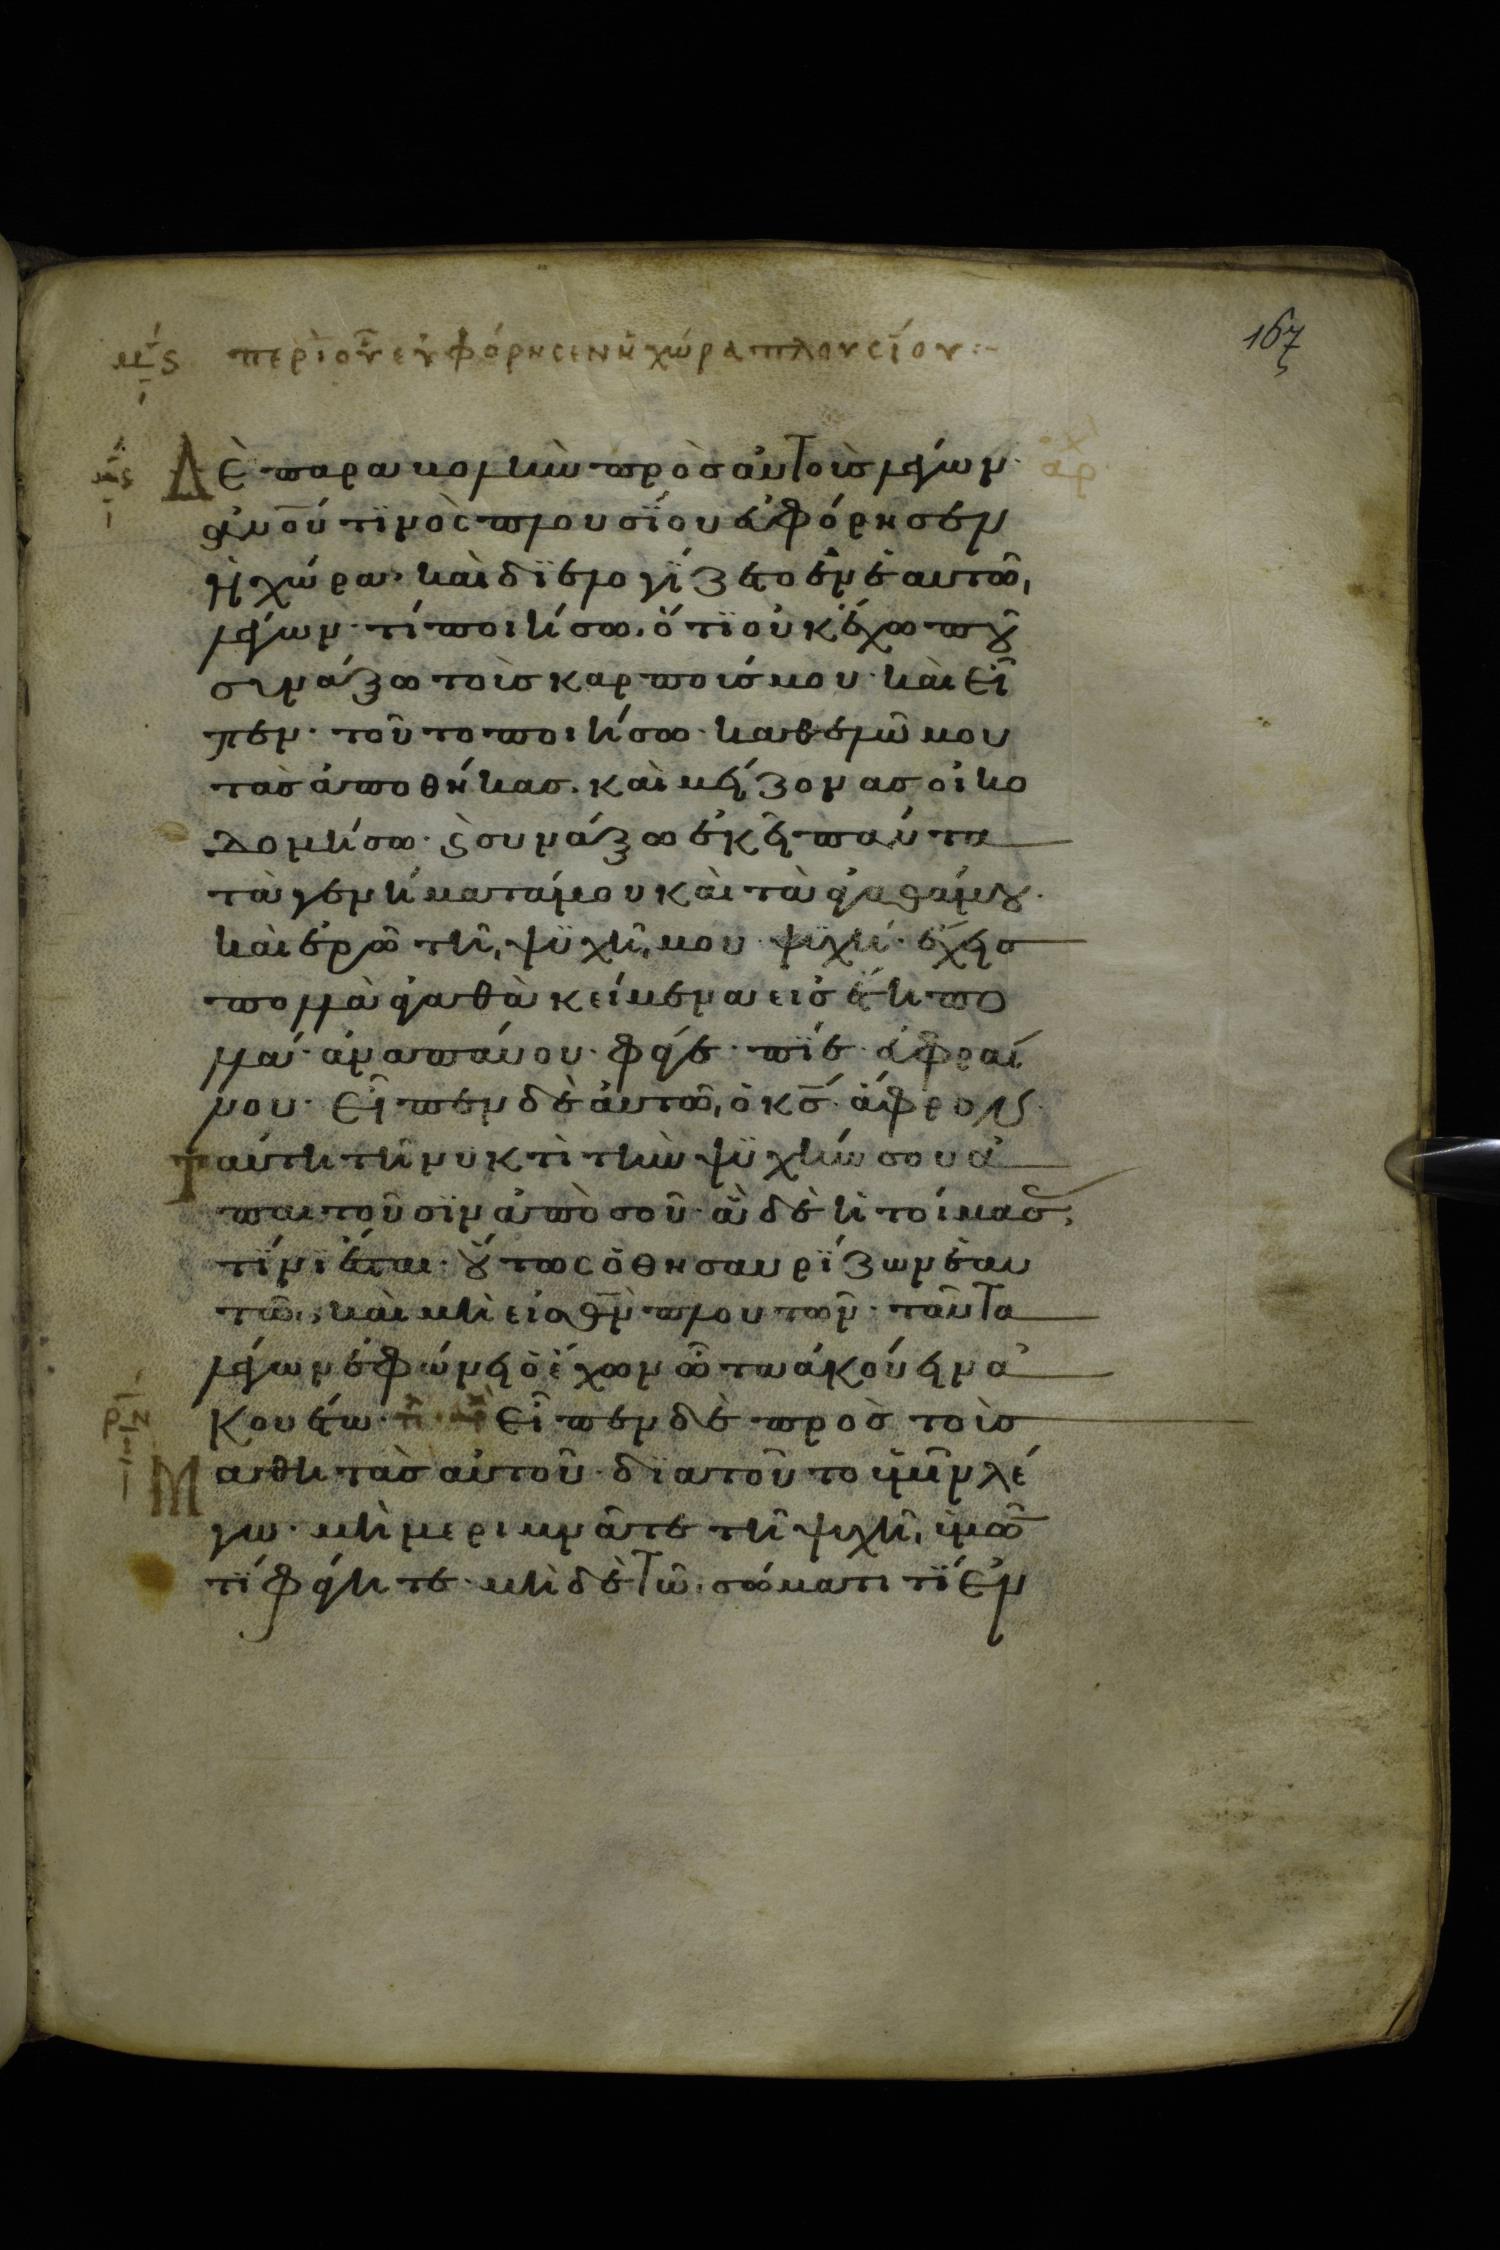 167
μ̅ς περὶ οὗ εὐφόρησεν ἡ χώρα πλουσΐου :~
Δὲ παραβολὴν πρὸς αὐτοὺς λέγων·
ἀνο̅ύ τϊνὸς πλουσΐου εὐφόρησεν
ἡ χώρα· καὶ δϊελογΐζετο ἐν ἑαυτῶ,
λέγων· τί ποιήσω, ὅτϊ οὐκ ἔχω ποῦ
συνάξω τοὺς καρπούς μου· καὶ εἶ
πεν· τοῦτο ποιήσω· καθελῶ μου
τὰς ἀποθήκας. καὶ μείζονας οἰκο
δομήσω· ϛ̀ συνάξω ἐκεῖ πάντα
τὰ γενήματά μου καὶ τὰ ἀγαθά μου·
καὶ ἐρῶ τῆ, ψϋχῆ, μου· ψϋχή· ἔχεις
πολλὰ ἀγαθὰ κείμενα εἰς ἔτη πο
λλά· ἀναπάυου· φάγε· πΐε· εὐφραί
νου· εἶπεν δὲ αὐτῶ, ὁ κ̅ς· ἄφρον·
Ταύτη τῆ νυκτὶ τὴν ψϋχήν σου ἀ
παιτοῦσϊν ἀπὸ σοῦ· ἃ δὲ ἡτοίμασας,
τΐνϊ ἔσται· οὕτως ὁ θησαυρΐζων ἑαυ
τῶ, καὶ μὴ εἰς θ̅ν̀ πλουτῶν· ταῦτα
λέγων ἐφώνει ὁ ἔχων ὦτα ἀκούειν ἀ
κουέτω· εἶπεν δὲ πρὸς τοὺς
Μαθητὰς αὐτοῦ· δϊατοῦτο ὑμῖν λέ
γω· μὴ μεριμνᾶτε τῆ ψυχῆ, ὑμῶν
τί φάγητε· μὴ δὲ τῶ, σώματι τΐ ἐν